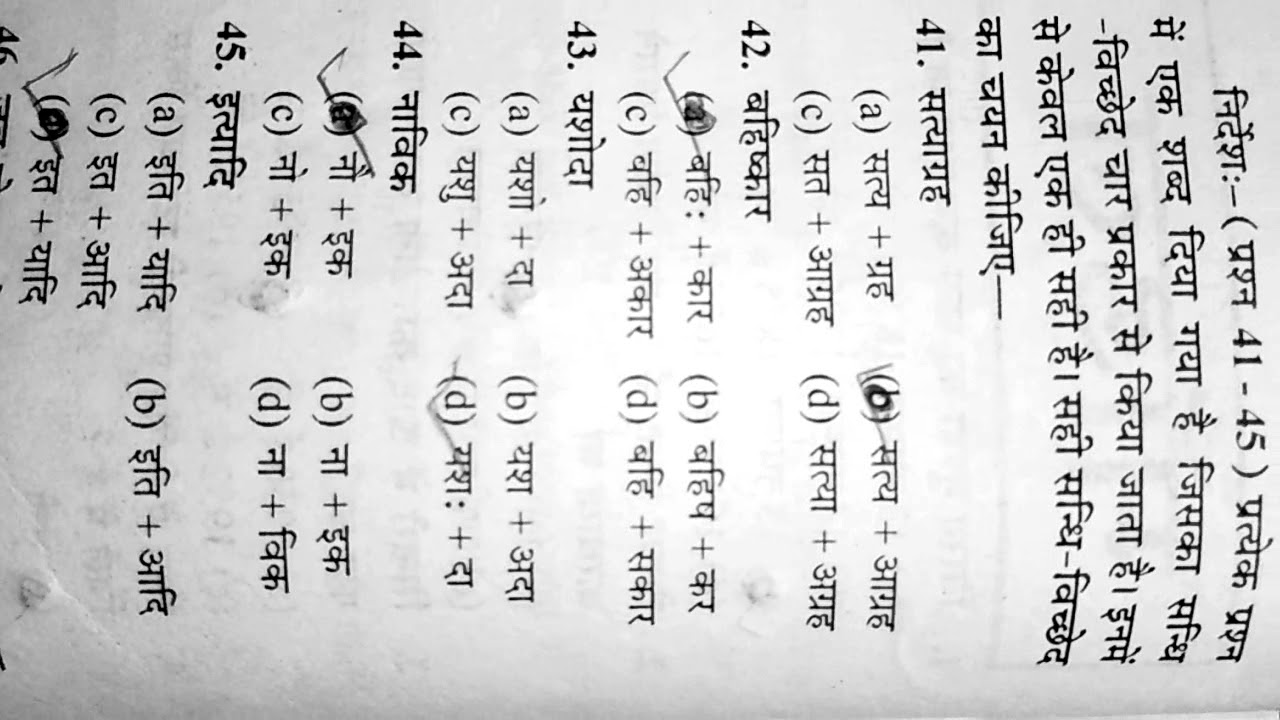 निर्देशः– ( प्रश्न 41 - 45 ) प्रत्येक प्रश्न
में एक शब्द दिया गया है जिसका सन्धि
-विच्छेद चार प्रकार से किया जाता है। इनमें
से केवल एक ही सही है। सही सन्धि-विच्छेद
का चयन कीजिए—
41. सत्याग्रह
(a) सत्य + ग्रह (b) सत्य + आग्रह
(c) सत + आग्रह (d) सत्या + अग्रह
42. बहिष्कार
(a) बहिः + कार (b) बहिष + कर
(c) बहि + अकार (d) बहि + सकार
43. यशोदा
(a) यशो + दा (b) यश + अदा
(c) यशु + अदा (d) यशः + दा
44. नाविक
(a) नौ + इक (b) ना + इक
(c) नो + इक (d) ना + विक
45. इत्यादि
(a) इति + यादि (b) इति + आदि
(c) इत + आदि
इत + यादि
46.